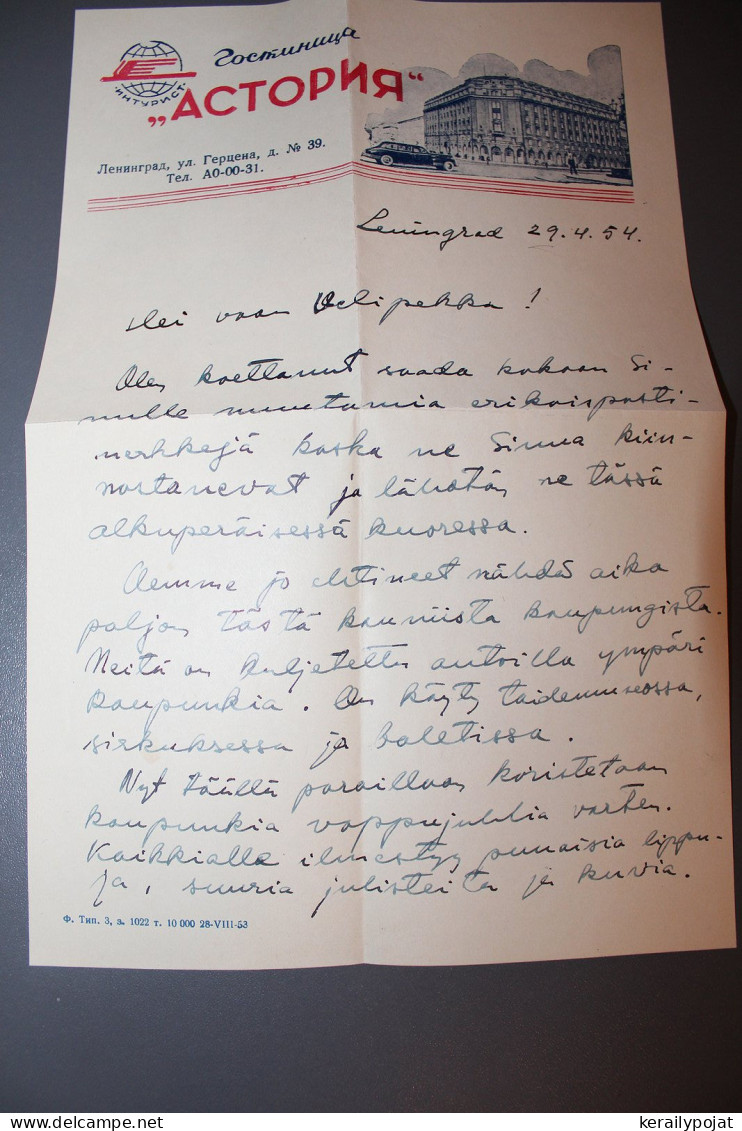 Гостиница
ИНТУРИСТ
„АСТОРИЯ“
Ленинград, ул. Герцена, д. № 39.
Тел. А0-00-31.
Leningrad 29.4.54.
Hei vaan Velipekka!
Olen koettanut saada kokoon Si-
nulle muutamia erikoisposti-
merkkejä koska ne Sinua kiin-
nostanevat ja lähetän ne tässä
alkuperäisessä kuoressa.
Olemme jo ehtineet nähdä aika
paljon tästä kauniista kaupungista.
Meitä on kuljetettu autoilla ympäri
kaupunkia. On käyty taidemuseossa,
sirkuksessa ja baletissa.
Nyt täällä paraillaan koristetaan
kaupunkia vappujuhlia varten.
Kaikkialle ilmestyy punaisia lippu-
ja, suuria julisteita ja kuvia.
Ф. Тип. 3, з. 1022 т. 10 000 28-VIII-53
© kerailypojat